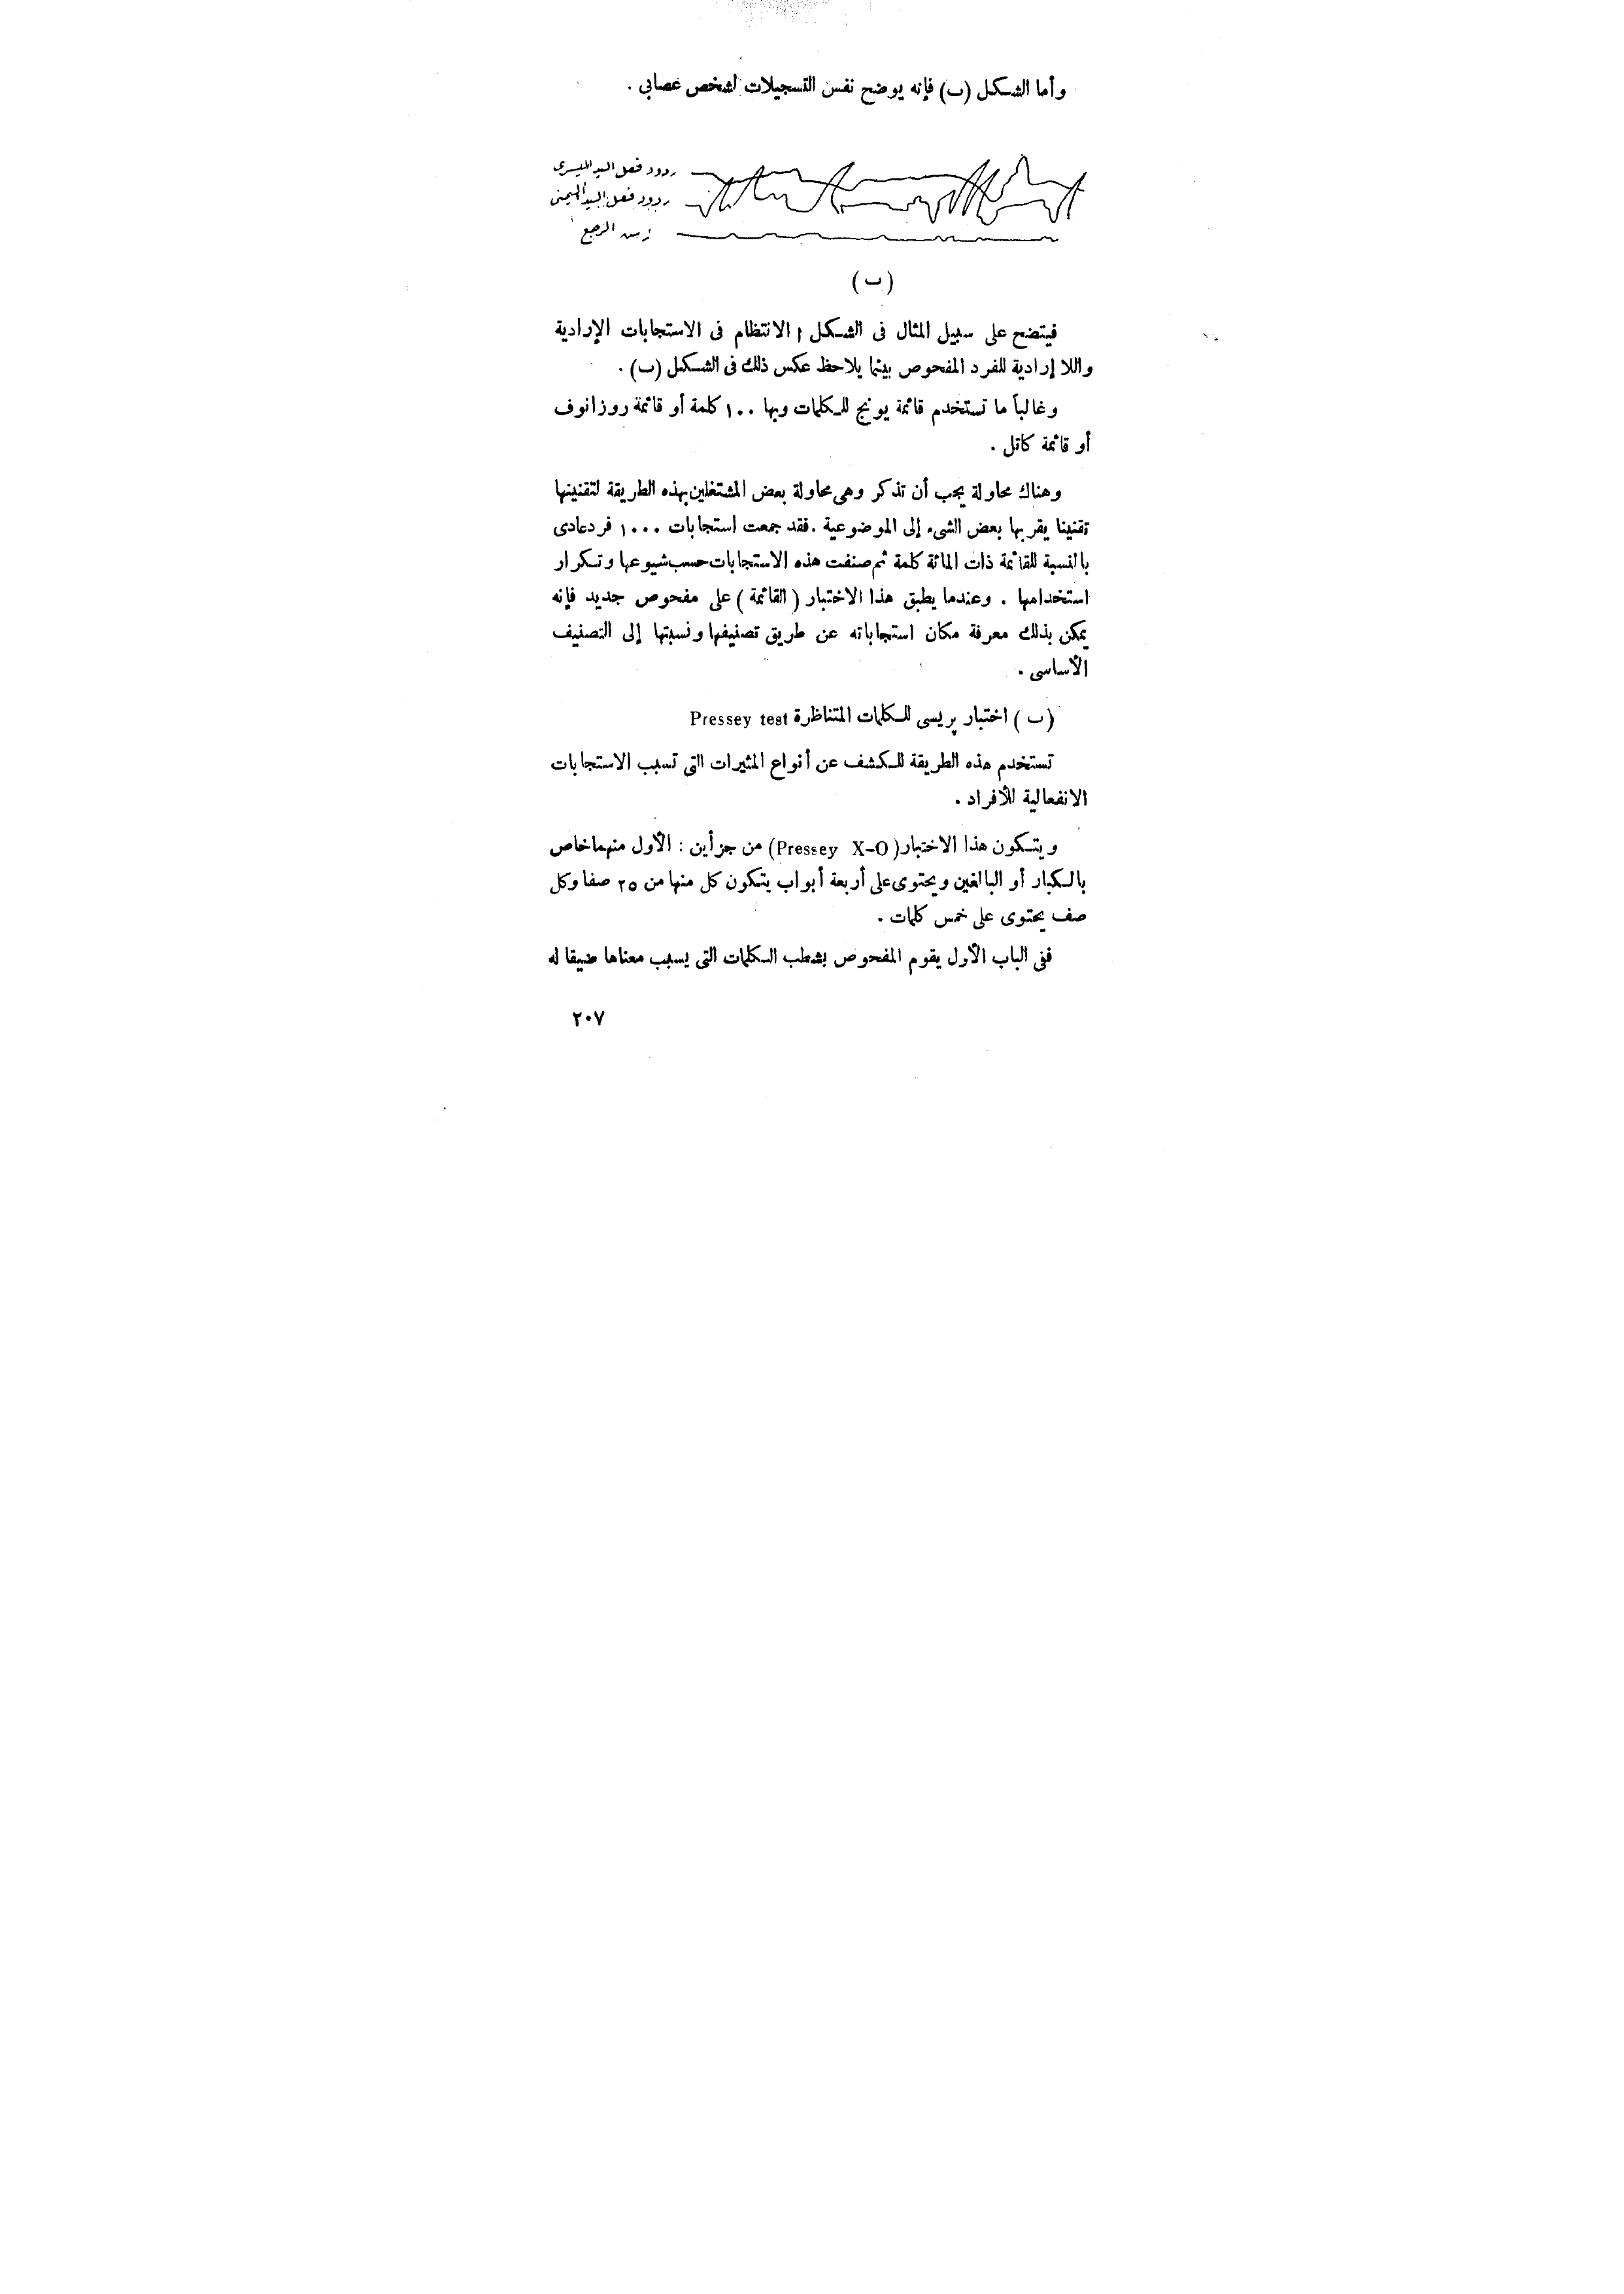 وأما الشكل (ب) فإنه يوضح نفس التسجيلات لشخص عصابي .
ردود فعل اليد اليسرى
ردود فعل اليد اليمنى
زمن الرجع
(ب)
فيتضح على سبيل المثال فى الشكل ا الانتظام فى الاستجابات الإرادية
واللا إرادية للفرد المفحوص بينما يلاحظ عكس ذلك فى الشكل (ب) .
وغالباً ما تستخدم قائمة يونج للكلمات وبها ١٠٠ كلمة أو قائمة روزانوف
أو قائمة كاتل .
وهناك محاولة يجب أن تذكر وهى محاولة بعض المشتغلين بهذه الطريقة لتقنينها
تقنينا يقربها بعض الشىء إلى الموضوعية . فقد جمعت استجابات ١٠٠٠ فرد عادى
بالنسبة للقائمة ذات المائة كلمة ثم صنفت هذه الاستجابات حسب شيوعها وتكرار
استخدامها . وعندما يطبق هذا الاختبار ( القائمة ) على مفحوص جديد فإنه
يمكن بذلك معرفة مكان استجاباته عن طريق تصنيفها ونسبتها إلى التصنيف
الأساسى .
( ب ) اختبار پريسى للكلمات المتناظرة Pressey test
تستخدم هذه الطريقة للكشف عن أنواع المثيرات التى تسبب الاستجابات
الانفعالية للأفراد .
ويتكون هذا الاختبار (Pressey X-O) من جزأين : الأول منهما خاص
بالكبار أو البالغين ويحتوى على أربعة أبواب يتكون كل منها من ٢٥ صفا وكل
صف يحتوى على خمس كلمات .
ففى الباب الأول يقوم المفحوص بشطب الكلمات التى يسبب معناها ضيقا له
٢٠٧